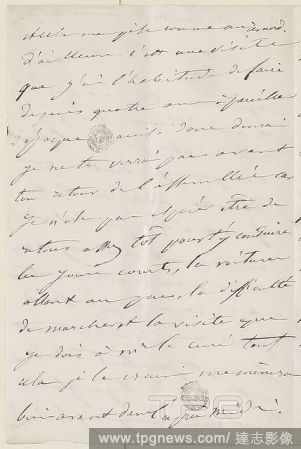 me pèse comme un
d'ailleurs c'est une visite
que j'ai l'habitude de faire
depuis quatre ans à pareille
époque aussi donc demain
je ne te verrai pas avant
ton retour de l'assemblée car
je n'ose pas espérer être de
retour assez tôt pour t'y conduire
les jours courts, la voiture
allant au pas, la difficulté
de marcher et la visite que
je dois à mr le curé tout
cela je le crains me mènera
bien avant dans l'après midi.
www.tpgnews.com / 達志影像